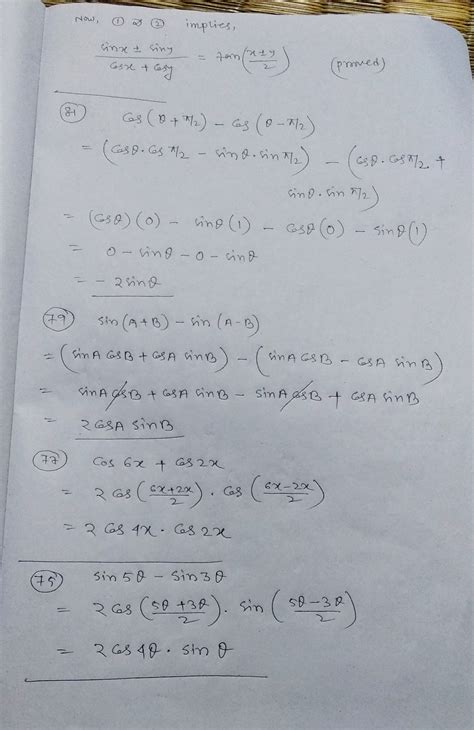 Now, ① & ② implies,
(sinx ± siny)/(cosx + cosy) = tan((x±y)/2) (proved)
81 cos(θ + π/2) - cos(θ - π/2)
= (cosθ. cos π/2 - sinθ. sin π/2) - (cosθ. cos π/2 +
sinθ. sin π/2)
= (cosθ)(0) - sinθ(1) - cosθ(0) - sinθ(1)
= 0 - sinθ - 0 - sinθ
= - 2 sinθ
79 sin(A+B) - sin(A-B)
= (sinA cosB + cosA sinB) - (sinA cosB - cosA sinB)
= sinA cosB + cosA sinB - sinA cosB + cosA sinB
= 2 cosA sinB
77 cos 6x + cos 2x
= 2 cos((6x+2x)/2) . cos((6x-2x)/2)
= 2 cos 4x . cos 2x
75 sin 5θ - sin 3θ
= 2 cos((5θ+3θ)/2) . sin((5θ-3θ)/2)
= 2 cos 4θ . sin θ